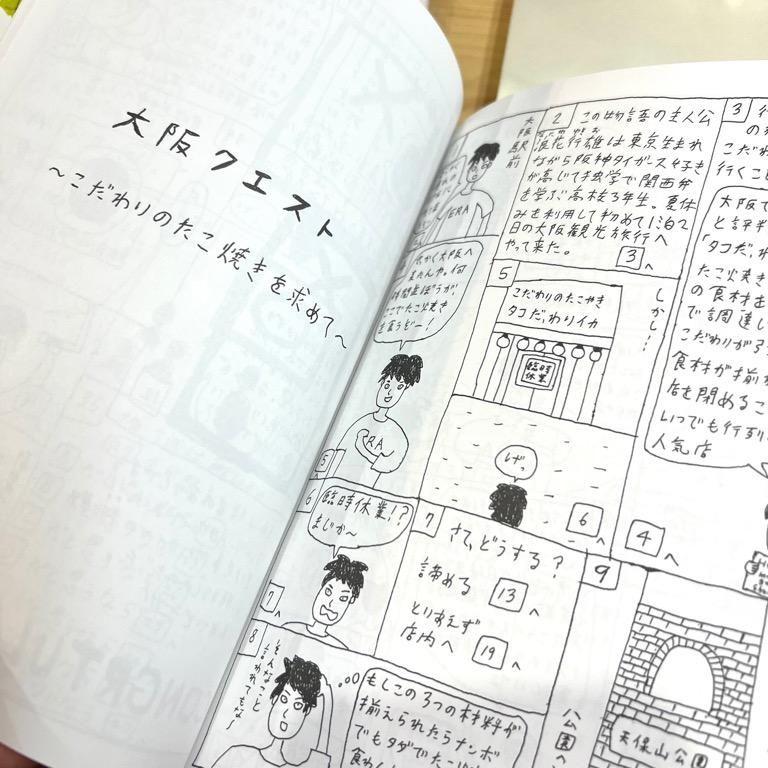 大阪クエスト
～こだわりのたこ焼きを求めて～
大阪駅前
ERA
2
この物語の主人公
浪花行雄は東京生まれ
ながら阪神タイガース好き
が高じて独学で関西弁
を学ぶ高校3年生。夏休
みを利用して初めて1泊2
日の大阪観光旅行へ
やって来た。
3へ
3
こだわ
行くこと
大阪で
と評判
「タコだ、わ
たこ焼き
の食材を
で調達し
こだわりが
食材が揃わ
店を閉めるこ
いつでも行列
人気店
しかし…
4へ
大阪へ
またんや。何
時間並ぼうが、
ここでたこ焼き
を食うどー！
5へ
5
こだわりのたこやき
タコだ、わりイカ
臨時
休業
しげっ
6へ
6
臨時休業!?
まじか～
7へ
7
さて、どうする？
諦める 13へ
とりあえず
店内へ 19へ
8
そんなこと
言われてもな～
もしこの3つの材料が
揃えられたらナンボ
でもタダでたこ焼
9
天保山公園
公園へ